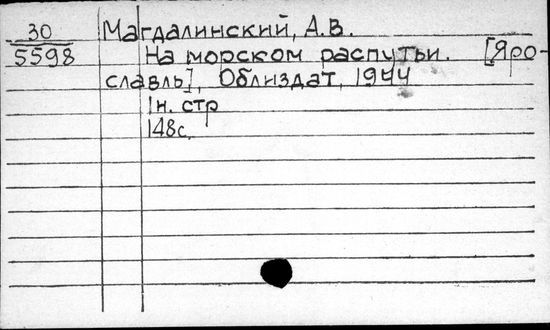 30 Магдалинский, А.В.
5598 На морском распутьи. [Яро-
славль], Облиздат, 1944
1н. стр
148с.